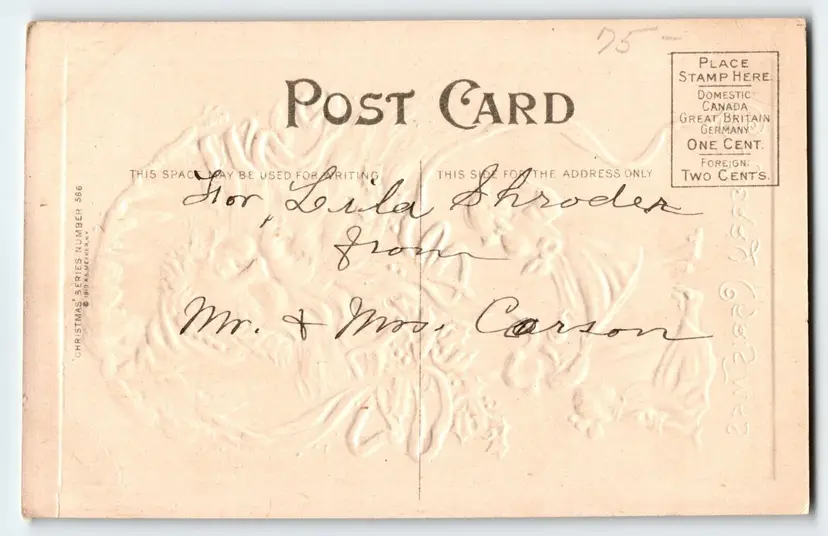 75-
POST CARD
PLACE
STAMP HERE
DOMESTIC
CANADA
GREAT BRITAIN
GERMANY
ONE CENT.
FOREIGN:
TWO CENTS.
THIS SPACE MAY BE USED FOR WRITING
THIS SIDE FOR THE ADDRESS ONLY
For, Lila Shroder
from
Mr. & Mrs. Carson
CHRISTMAS SERIES NUMBER 586